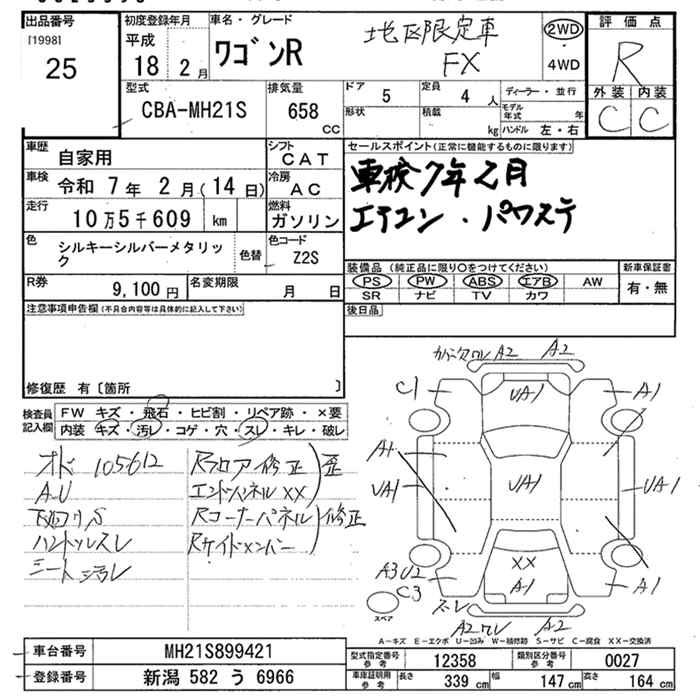 出品番号
[1998]
25
初度登録年月
平成
18 2月
車名・グレード
ワゴンR
地区限定車
FX
2WD
4WD
評価点
R
外装 内装
C C
型式
CBA-MH21S
排気量
658 CC
ドア
5
定員
4 人
形状
積載
kg
ディーラー・並行
モデル年式 年
ハンドル 左・右
車歴
自家用
シフト
CAT
車検
令和 7年 2月(14日)
冷房
AC
走行
10万5千609 km
燃料
ガソリン
色
シルキーシルバーメタリック
色替
色コード
Z2S
R券
9,100円
名変期限
月 日
セールスポイント(正常に機能するものに限ります)
車検7年2月
エアコン・パワステ
装備品(純正品に限り○をつけてください)
新車保証書
PS PW ABS エアB AW
有・無
SR ナビ TV カワ
後日品
注意事項申告欄(不具合内容等は具体的に記入して下さい)
修復歴 有〔箇所 〕
検査員記入欄
FW キズ・飛石・ヒビ割・リペア跡・×要
内装 キズ・汚レ・コゲ・穴・スレ・キレ・破レ
オド 105612
A・U
下回りS
ハンドルスレ
シート汚レ
Rフロア修正 歪
エンドパネルXX
Rコーナーパネル 修正
Rサイドメンバー
A2
A2
C1
UA1
A1
A1
UA1
UA1
UA1
A3U2
C3
XX
A-1
A1
スレ
A2ワレ
A2
スペア
A-キズ E-エクボ U-凹み W-補修跡 S-サビ C-腐食 XX-交換済
車台番号
MH21S899421
登録番号
新潟 582 う 6966
型式指定番号 参考
12358
類別区分番号 参考
0027
車庫証明用 参考
長さ 339 cm
幅 147 cm
高さ 164 cm